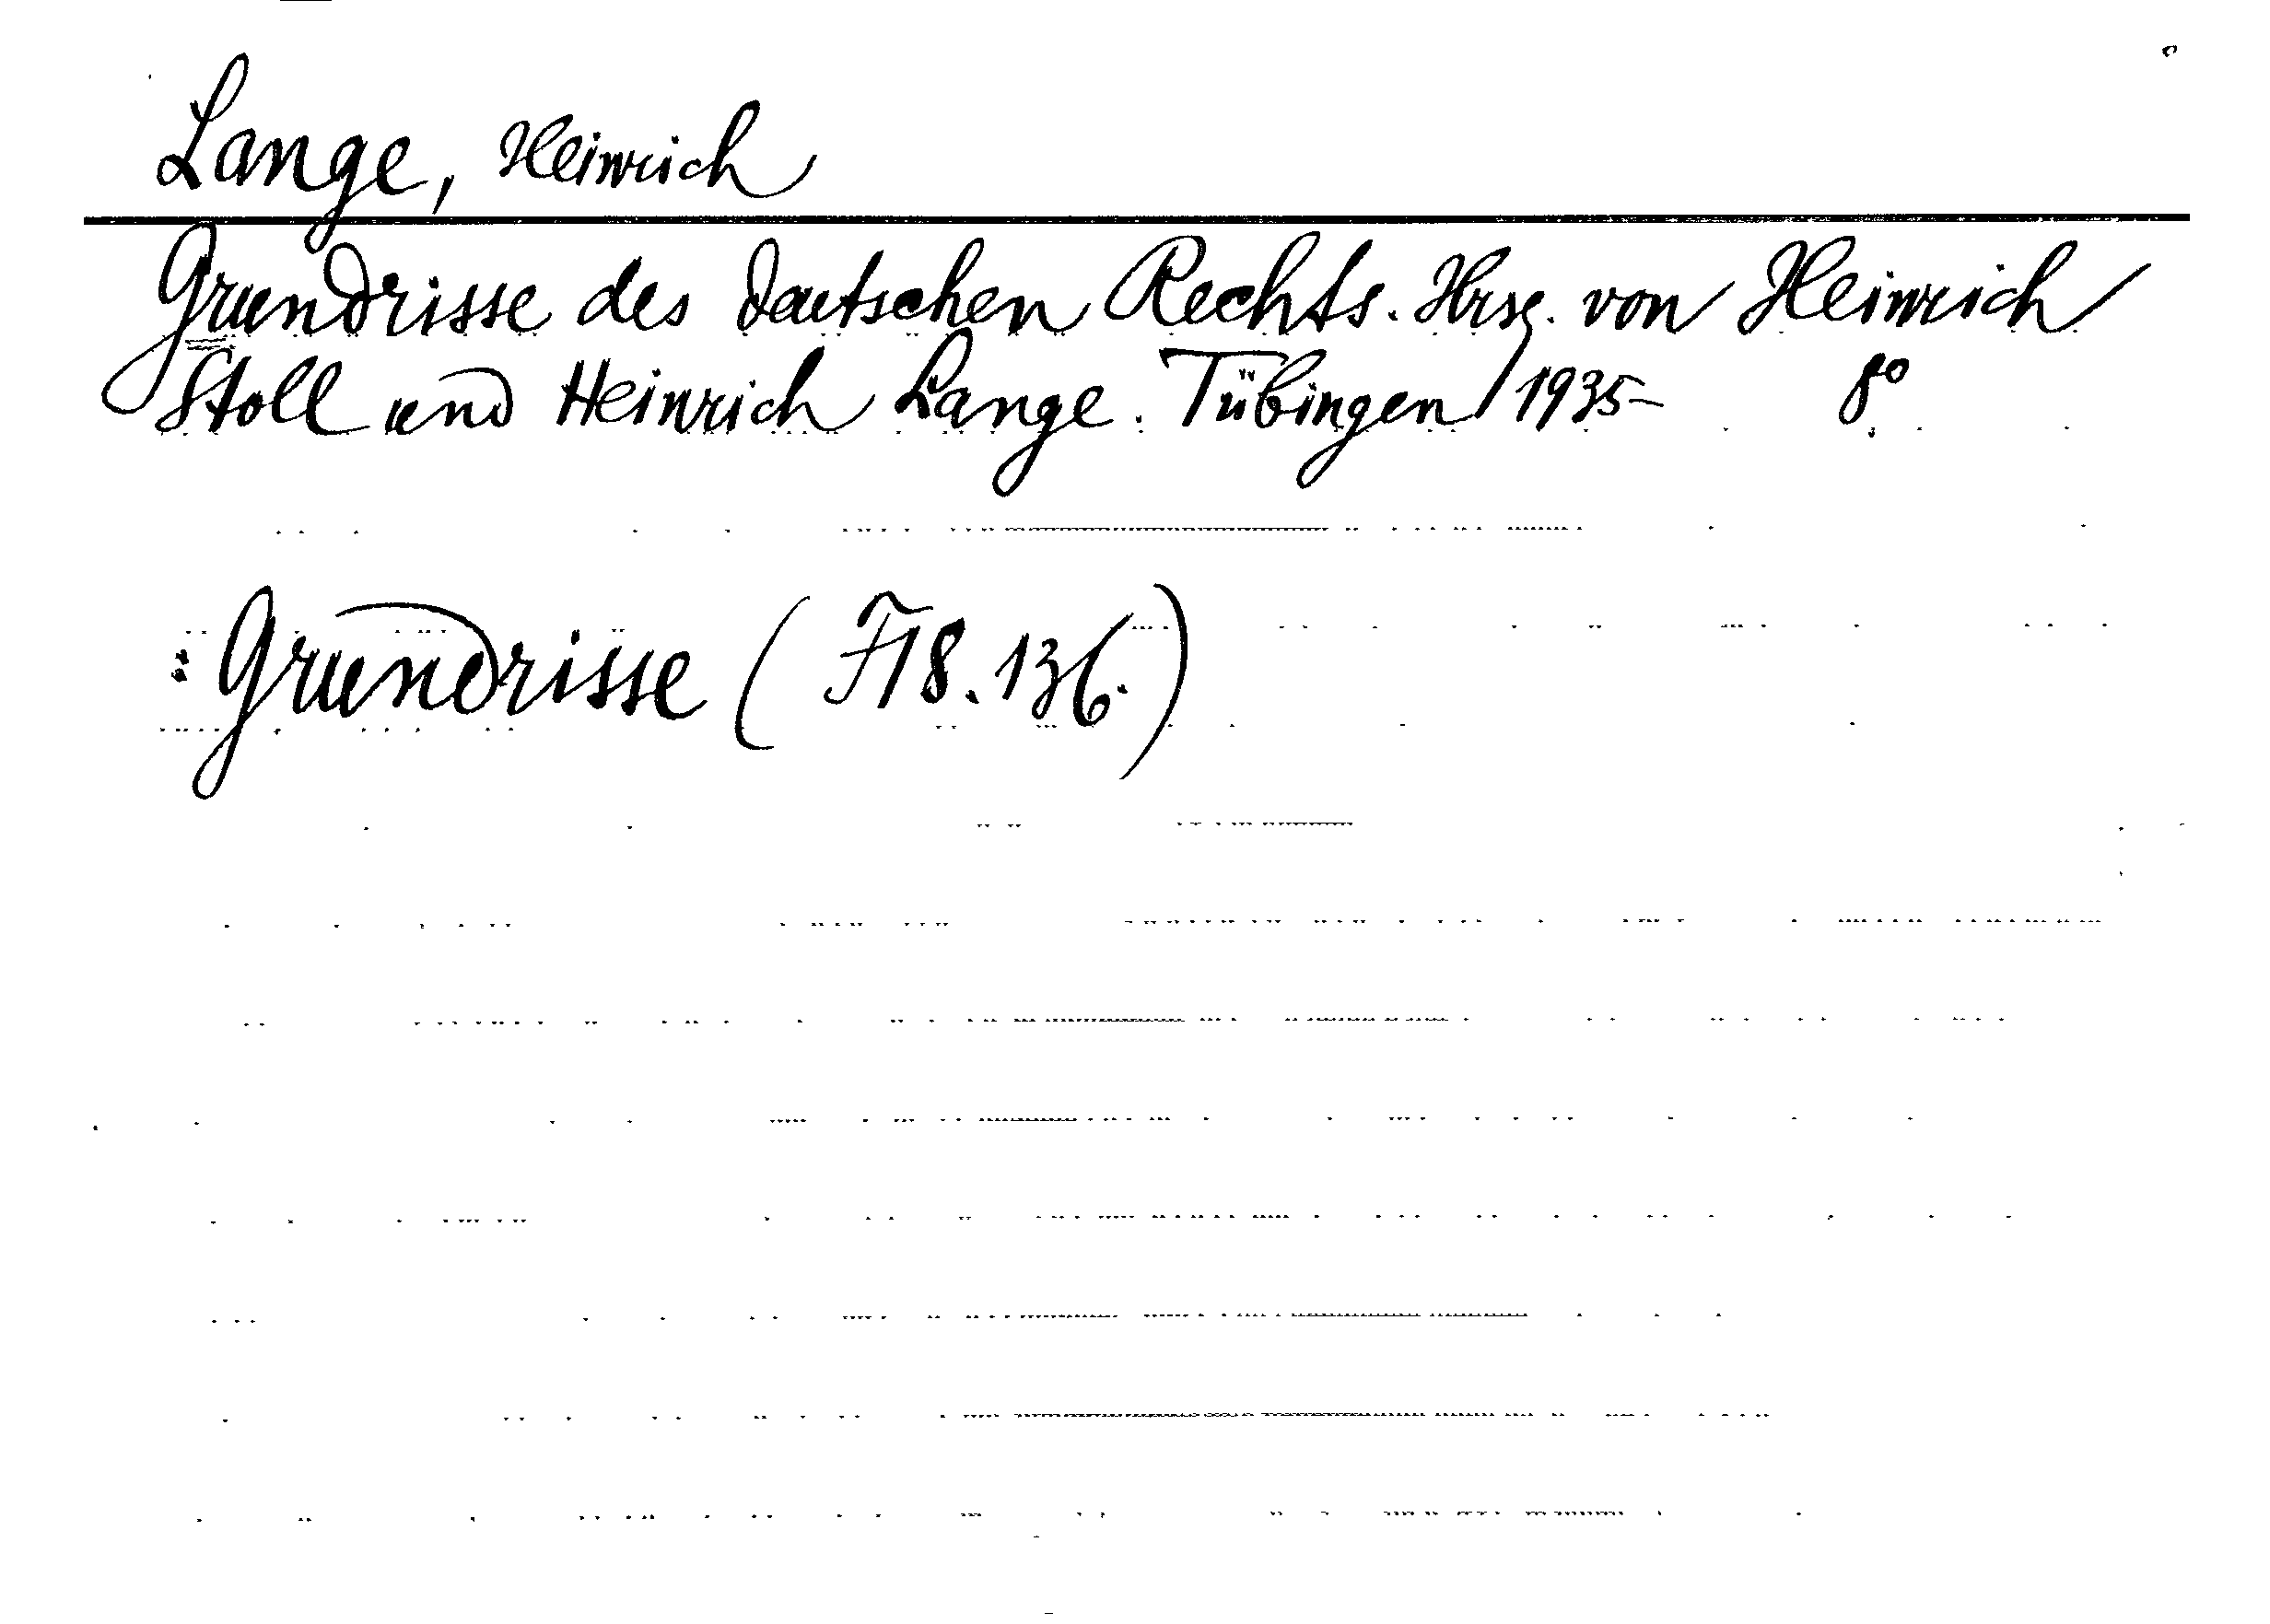 Lange, Heinrich
Grundrisse des deutschen Rechts. Hrsg. von Heinrich
Stoll und Heinrich Lange. Tübingen 1935- 8°
: Grundrisse ( F 18. 136.)